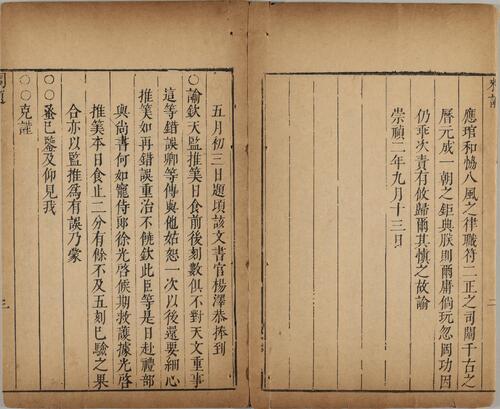 應琯和協八風之律職符二正之司闡千古之
曆元成一朝之鉅典朕則爾庸倘玩忽罔功因
仍乖次責有攸歸爾其慎之故諭
崇禎二年九月十三日
五月初三日題頃該文書官楊澤恭捧到
○諭欽天監推筭日食前後刻數俱不對天文重事
這等錯誤卿等傳與他姑恕一次以後還要細心
推筭如再錯誤重治不饒欽此臣等是日赴禮部
與尚書何如寵侍郎徐光啓候期救護據光啓
推筭本日食止二分有餘不及五刻已驗之果
合亦以監推爲有誤乃蒙
○○聖已鑒及仰見我
○○克謹